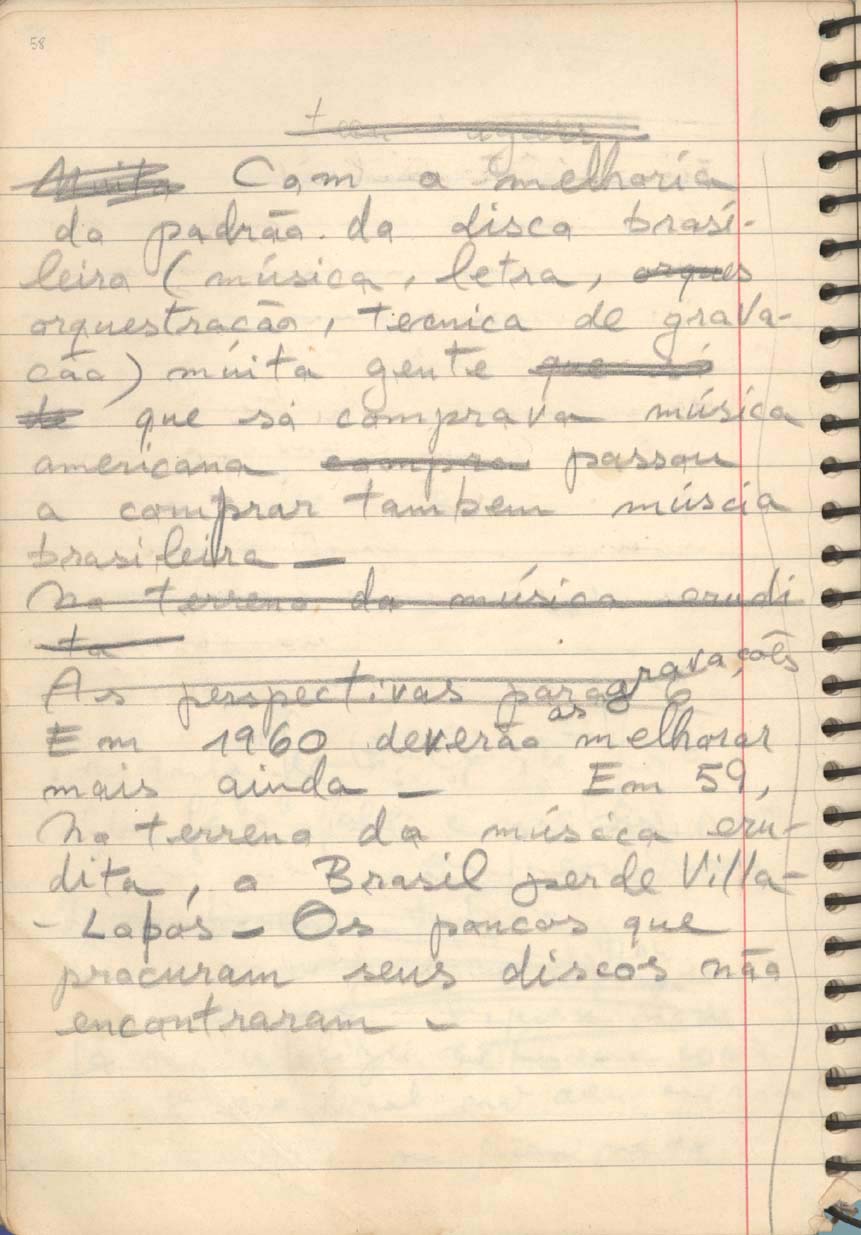 58
Com a melhoria
do padrão do disco brasi-
leiro (música, letra, orques
orquestração, tecnica de grava-
cão) múita gente que só
que só comprava música
americana compra passou
a comprar tambem múscia
brasileira —
No terreno da música erudi
ta
As perspectivas para gravações
Em 1960 deverão as melhorar
mais ainda — Em 59,
No terreno da música eru-
dita, o Brasil perde Villa-
- Lobos — Os poucos que
procuram seus discos não
encontraram -